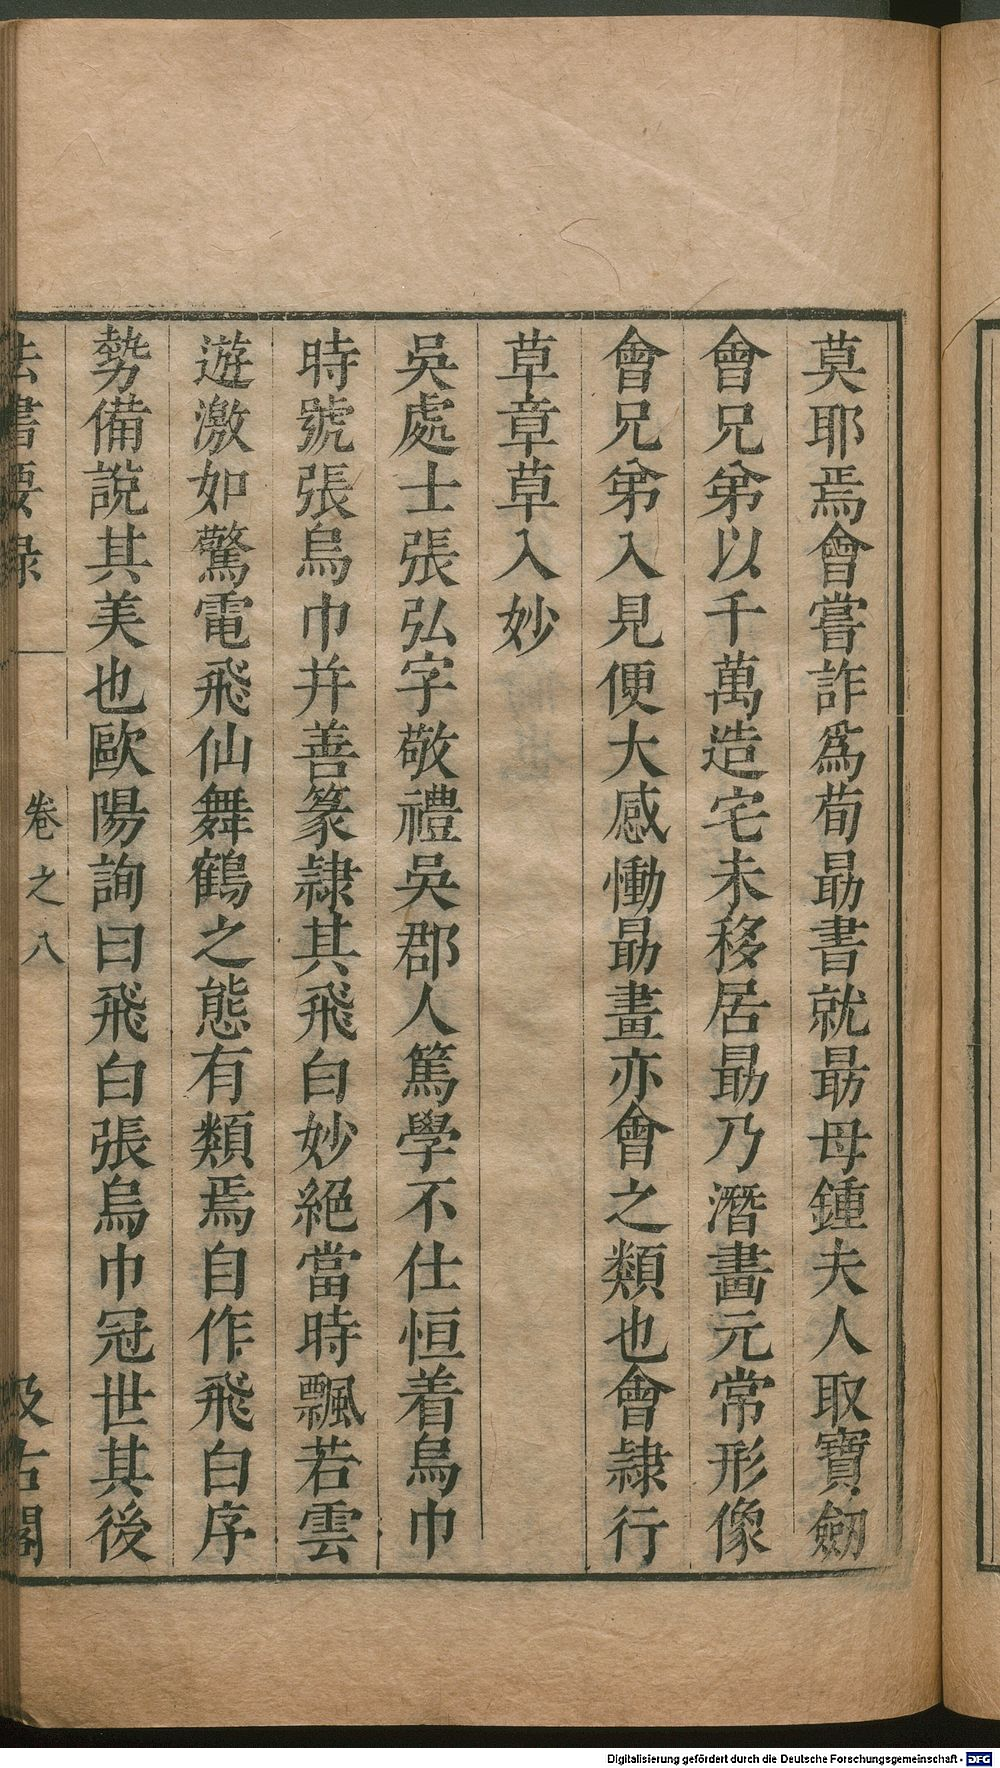 莫耶焉會嘗詐爲荀勗書就勗母鍾夫人取寶劒
會兄弟以千萬造宅未移居勗乃潛畫元常形像
會兄弟入見便大感慟勗畫亦會之類也會隷行
草章草入妙
吳處士張弘字敬禮吳郡人篤學不仕恒着烏巾
時號張烏巾并善篆隷其飛白妙絕當時飄若雲
遊激如驚電飛仙舞鶴之態有類焉自作飛白序
勢備說其美也歐陽詢曰飛白張烏巾冠世其後
法書要録
卷之八
汲古閣
Digitalisierung gefördert durch die Deutsche Forschungsgemeinschaft - DFG